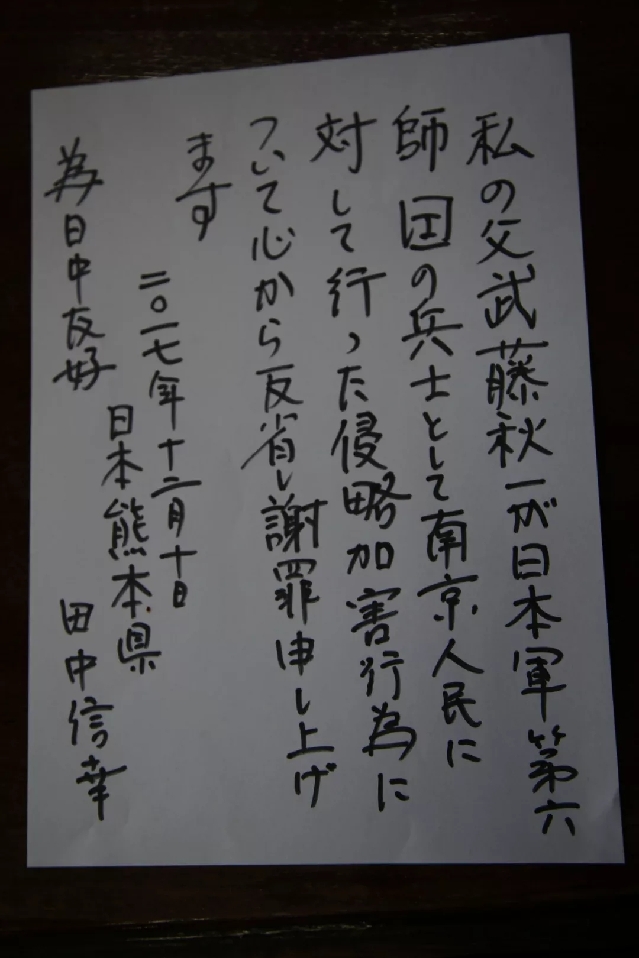 私の父武藤秋一が日本軍第六
師団の兵士として南京人民に
対して行った侵略加害行為に
ついて心から反省し謝罪申し上げ
ます
二〇一七年十二月十日
日本熊本県
田中信幸
為日中友好